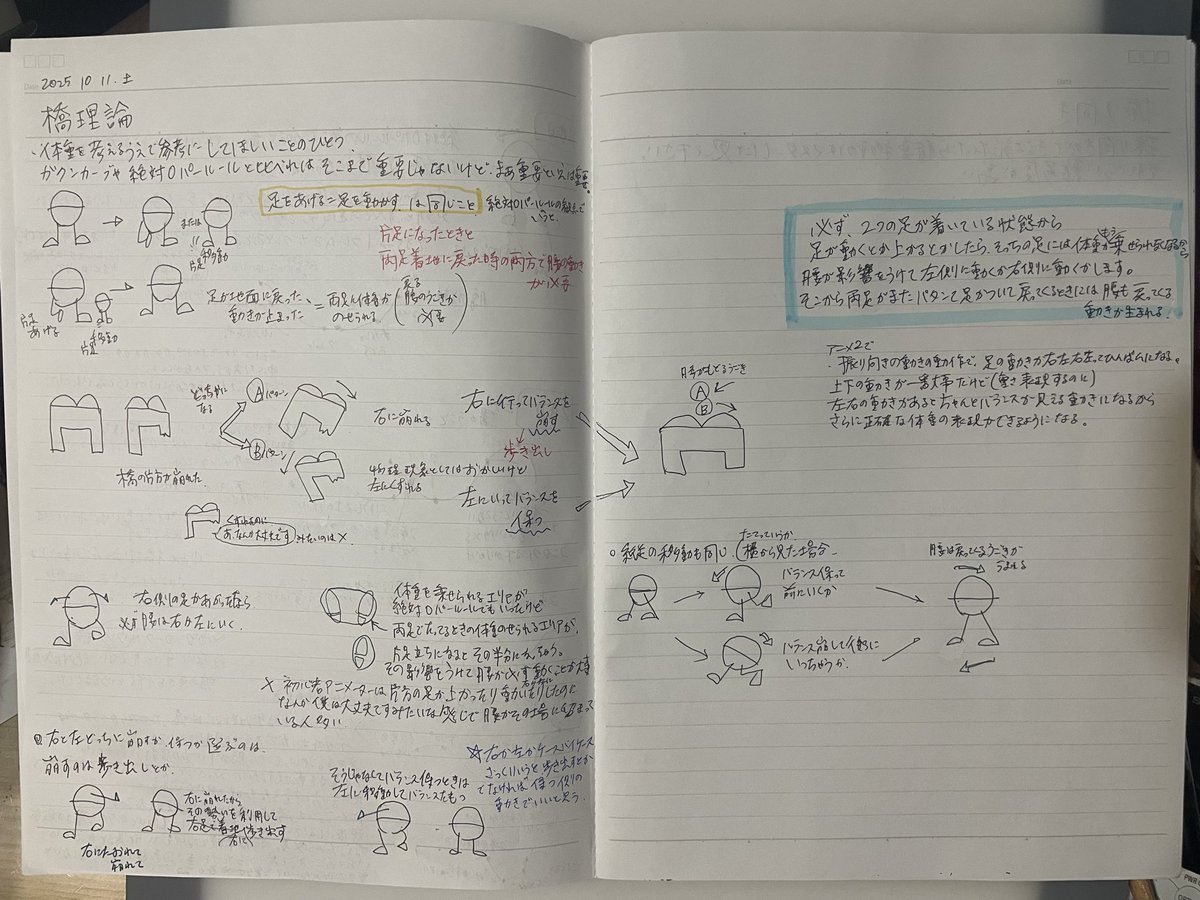 2025 10 11. 土
橋理論
・体重を考えるうえで参考にしてほしいことのひとつ.
ガクンカーブや絶対0パールールと比べればそこまで重要じゃないけど. まあ重要といえば重要。
足をあげる=足を動かす. は同じこと
絶対0パールールの観点で
いうと.
片足になったときと
両足着地に戻った時の両方で腰の動き
が必要
または
!!
片足移動
片足あげる
片足移動
足が地面に戻った
動きが止まった
= 両足に体重が
のせられる
(戻る
腰のうごきが
必要)
橋の片方が崩れた.
どっちかに
なる
Aパターン
右に崩れる
右に行ってバランスを
崩す
歩き出し
Bパターン
物理現象としてはおかしいけど
左にくずれる
左にいってバランスを
保つ
くずれたのに
あ、なんか大丈夫です
みたいのは×.
右側の足があがったなら
必ず腰は右か左にいく.
体重を乗せられるエリアが
絶対0パールールでもいったけど
両足でたってるときの体重のせられるエリアが.
片足立ちになるとその半分になっちゃう.
その影響をうけて腰が必ず動くことが大事
× 初心者アニメーターは片方の足が上がったり動いたりしたのに
なんか僕は大丈夫ですみたいな感じで腰がその場に留まって
いる人多い.
右と左どっちに崩すか. 保つか選ぶのは.
崩すのは歩き出しとか.
右にたおれて
崩れて
右に崩れたから
その勢いを利用して
右足を着地 歩き出す
(右に)
そうじゃなくてバランス保つときは
左に移動してバランスたもつ
☆右か左かケースバイケース
ざっくりいうと歩き出すとか
でなければ保つ側の
動きでいいと思う.
必ず、2つの足が着いている状態から
足が動くとか上がるとかしたら、そっちの足には体重がもう乗せられなくなるから
腰が影響をうけて左側に動くか右側に動くかします。
そこから両足がまたパタンて足がついて戻ってくるときには腰も戻ってくる
動きが生まれる.
アニメ2で
・振り向きの動きの動作で、足の動きが右左右左ってひんぱんになる。
上下の動きが一番大事だけど(重さ表現するのに)
左右の動きがあるとちゃんとバランスが見える動きになるから
さらに正確な体重の表現ができるようになる。
腰がもどるうごき
A
B
○ 縦足の移動も同じ.
(たてっていうか
横から見た場合.
バランス保って
前にいくか
バランス崩して後ろに
いっちゃうか.
腰は戻ってくるうごきが
うまれる